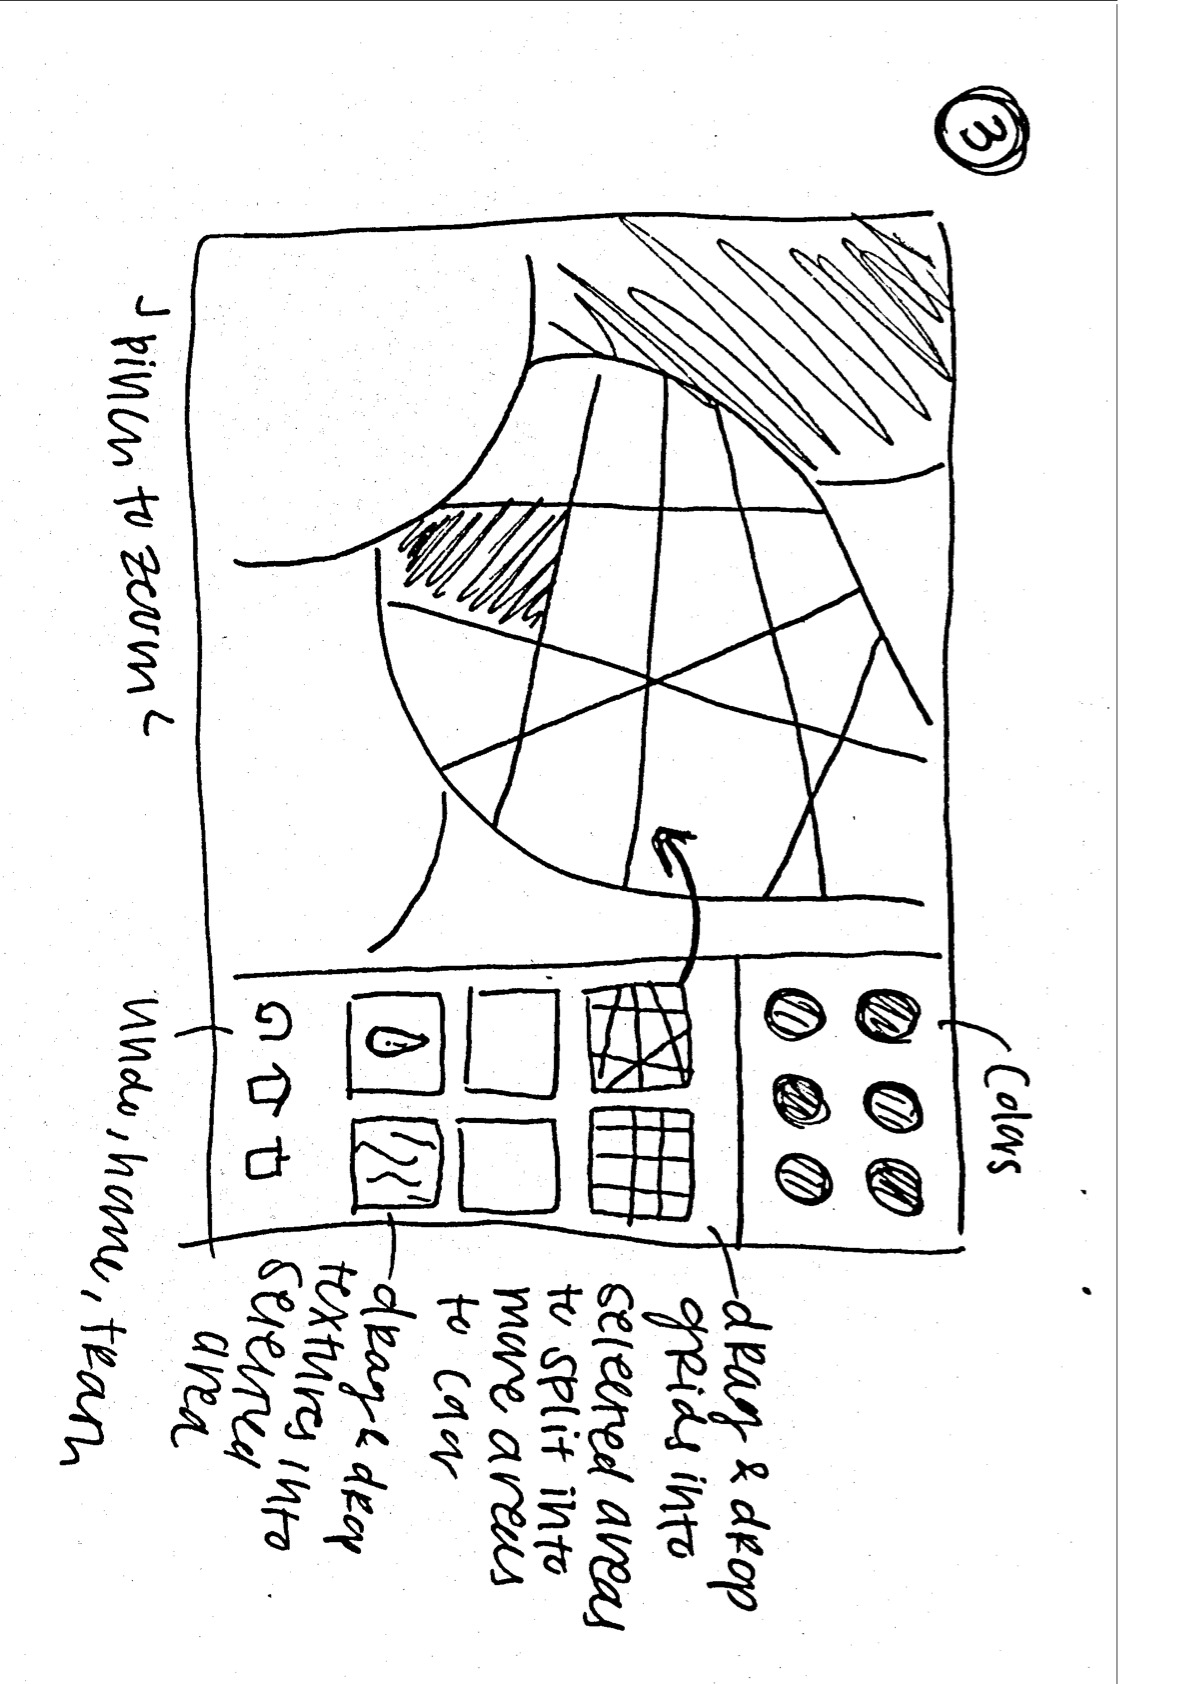 3
Colors
drag & drop
grids into
selected areas
to split into
more areas
to color
drag & drop
textures into
selected
area
undo, home, trash
pinch to zoom